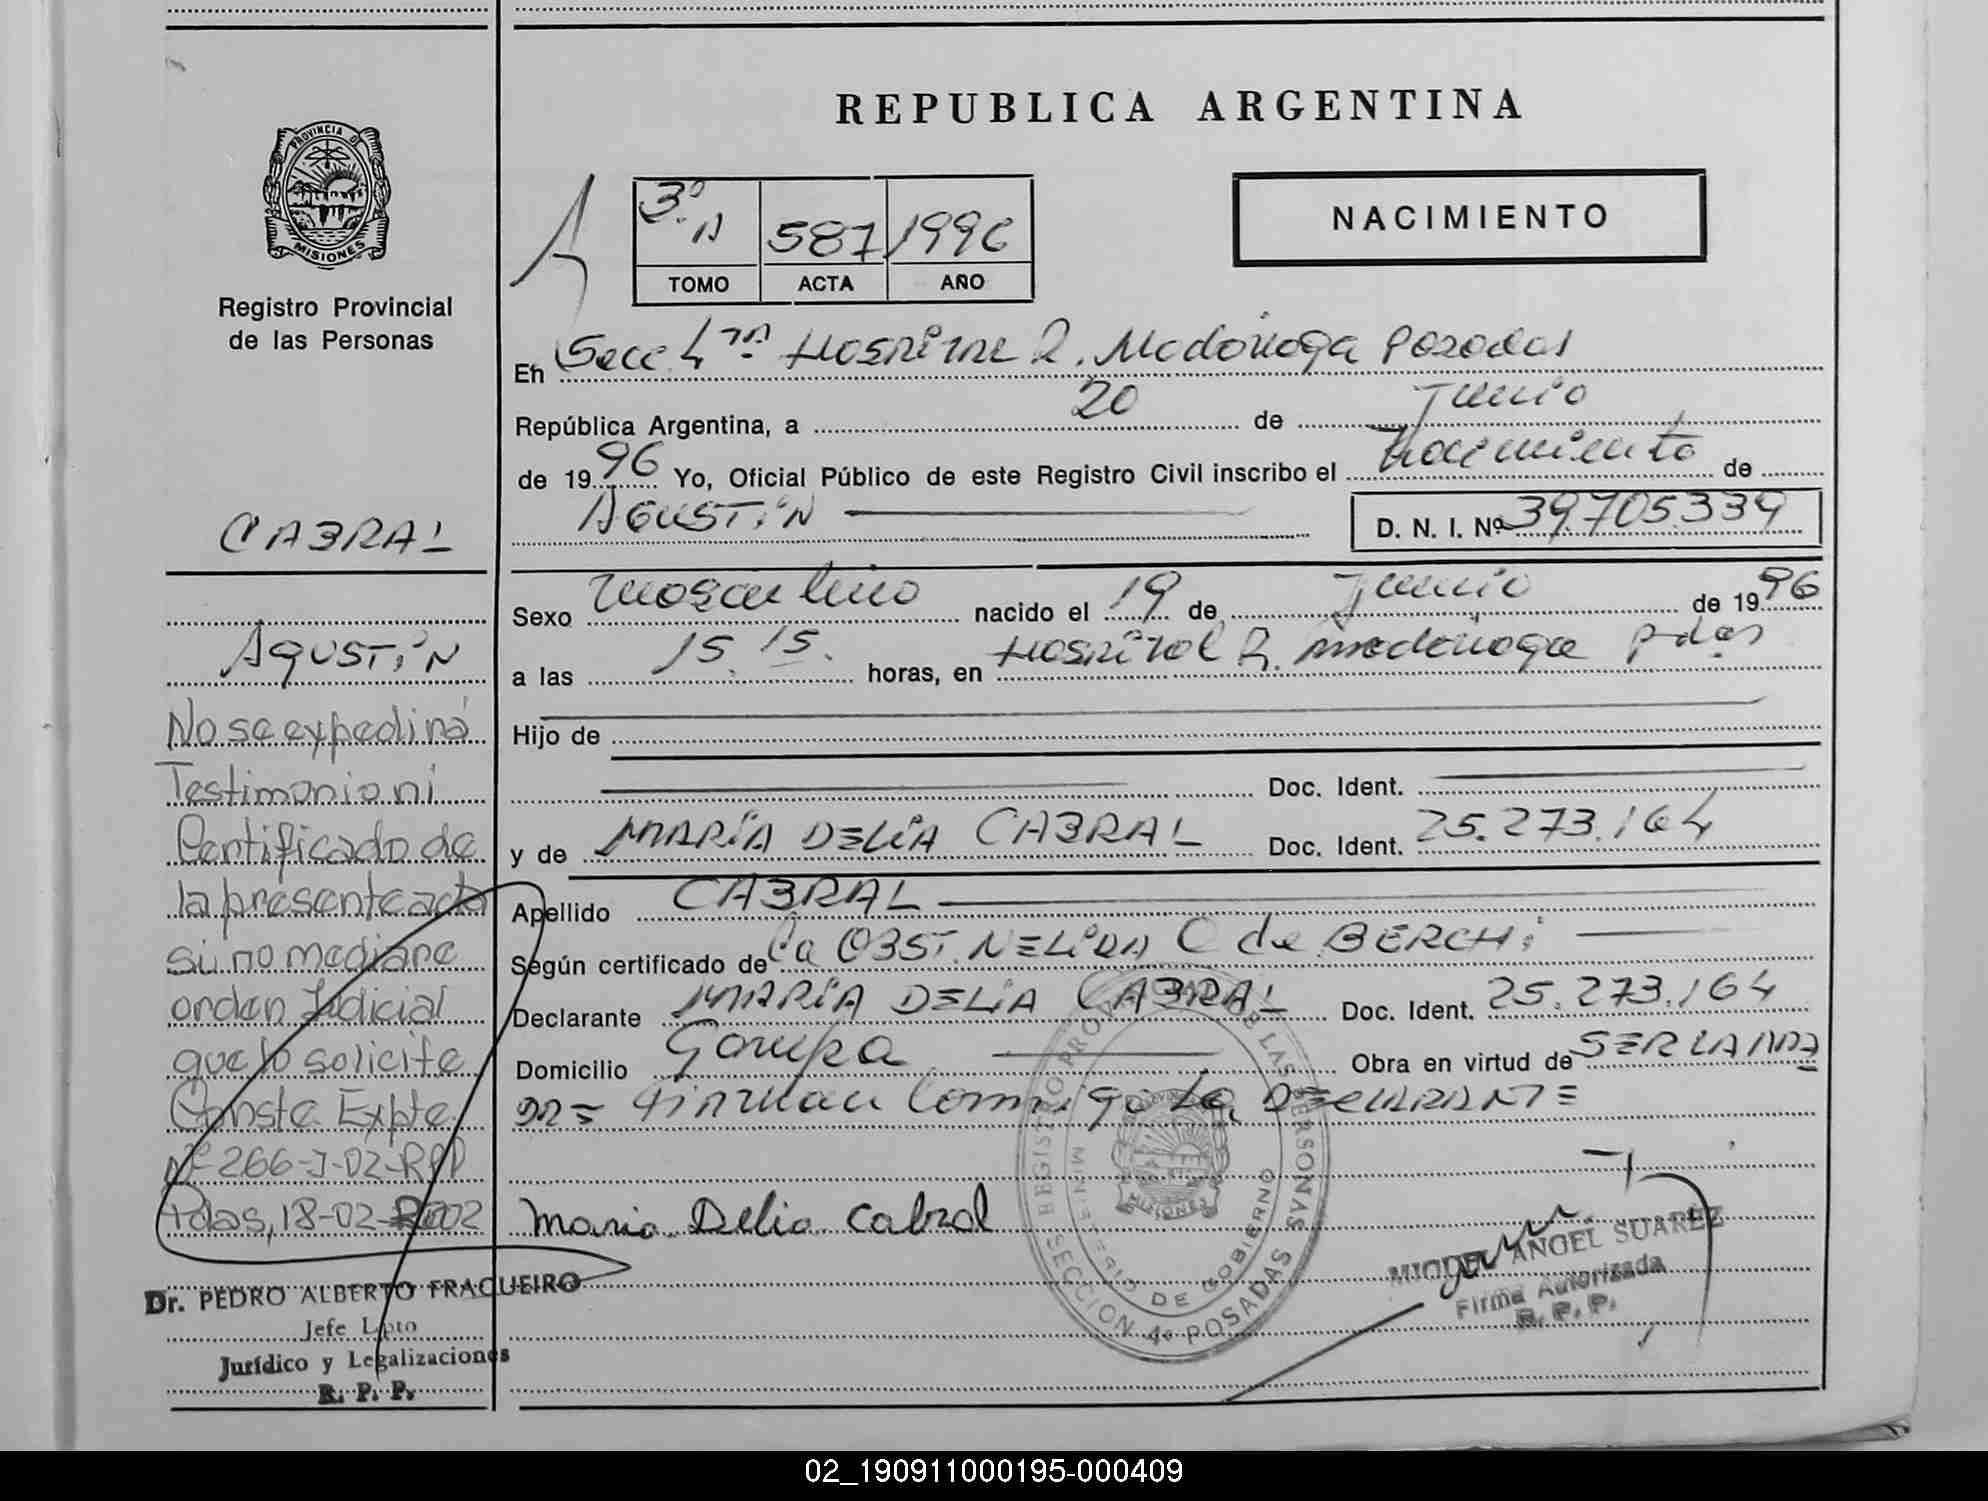 REPUBLICA ARGENTINA
PROVINCIA DE MISIONES
Registro Provincial
de las Personas
3º A 587 1996
TOMO ACTA AÑO
NACIMIENTO
En Secc 4ta Hospital R. Madariaga Posadas
República Argentina, a 20 de Junio
de 1996 Yo, Oficial Público de este Registro Civil inscribo el Nacimiento de
AGUSTÍN D. N. I. Nº 39.705.339
Sexo Masculino nacido el 19 de Junio de 1996
a las 15.15. horas, en Hospital R. Madariaga Pdas
Hijo de
Doc. Ident.
y de MARÍA DELIA CABRAL Doc. Ident. 25.273.164
Apellido CABRAL
Según certificado de la OBST. NELIDA C de BERCHI
Declarante MARÍA DELIA CABRAL Doc. Ident. 25.273.164
Domicilio Garupa Obra en virtud de SER LA MADRE
Firman Conmigo La DECLARANTE
Maria Delia Cabral
REGISTRO PROVINCIAL DE LAS PERSONAS
SECCION 4º POSADAS
MINISTERIO DE GOBIERNO
MISIONES
MIGUEL ANGEL SUAREZ
Firma Autorizada
R. P. P.
CABRAL
AGUSTÍN
No se expedirá
Testimonio ni
Certificado de
la presente acta
si no mediare
orden Judicial
que lo solicite
Conste Expte
Nº 266-J-02-RPP
Pdas, 18-02-2002
Dr. PEDRO ALBERTO FRAGUEIRO
Jefe Dpto
Jurídico y Legalizaciones
R. P. P.
02_190911000195-000409